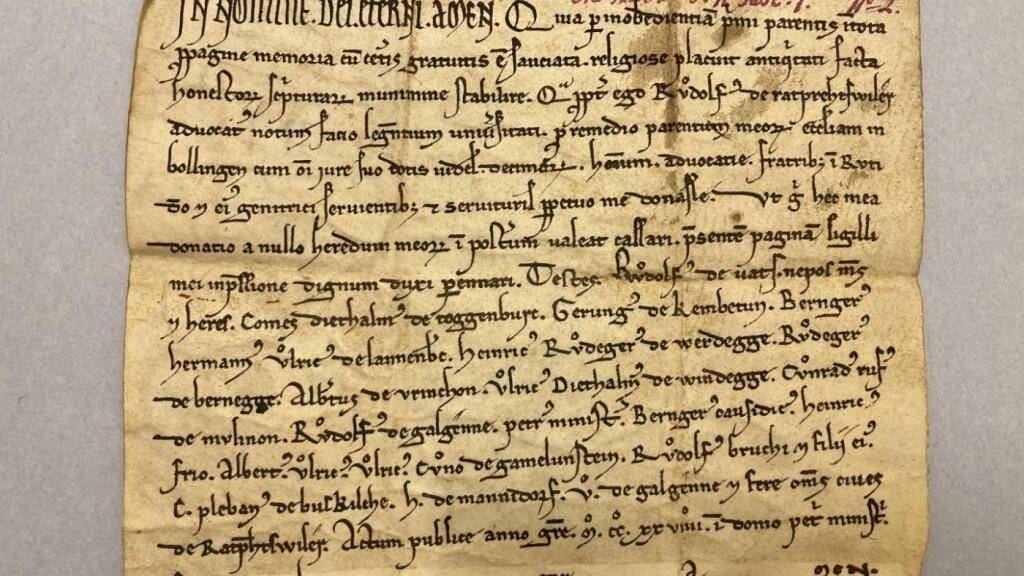 IN NOMINE. DEI. ETERNI. AMEN. Quia p inobedientiā pmi parentis
ppagine memoria cū cetis gratuitis ē sauciata. religiose placuit antiqtati facta
honestoꝝ scpturaꝝ munimine stabilire. Qͣ ppt ego Růdolfꝰ de ratprehtswiler
advocatꝰ notum facio legentium univsitati. p remedio parentum meoꝝ eccliam in
bollingen cum oī iure suo dotis videl. decimaꝝ. hoīnum. advocatie. fratribꝫ ī Ruti
dō ⁊ eiꝰ genitrici servientibꝫ ⁊ servituris ppetuo me donasse. Ut gͥ hec mea
donatio a nullo heredum meoꝝ ī postum valeat cassari. psentē paginā sigilli
mei inpssione dignum duxi pennari. Testes. Růdolfꝰ de vats. nepos mꝰs
⁊ heres. Comes diethalmꝰ de toggenburc. Gerungꝰ de kembetun. Berngerꝰ
hermannꝰ ůlricꝰ de lannenbc. heinricꝰ Růdegerꝰ de werdegge. Růdegerꝰ
de bernegge. Albtus de urinchon. ůlricꝰ Diethalmꝰ de windegge. Cůnradꝰ rufꝰ
de mulinon. Růdolfꝰ de galgenne. petrꝰ ministr. Berngerꝰ causidicꝰ. heinricꝰ
frio. Albertꝰ ůlricꝰ ůlricꝰ Cůno de gamelunstein. Růdolfꝰ bruchi ⁊ filii eiꝰ.
C. plebanꝰ de buskilche. h. de mannidorf. ů. de galgenne ⁊ fere oms cives
de Ratphtswiler. Actum publice anno gre. M. CC. XX VIIII. ī domo petr ministr.